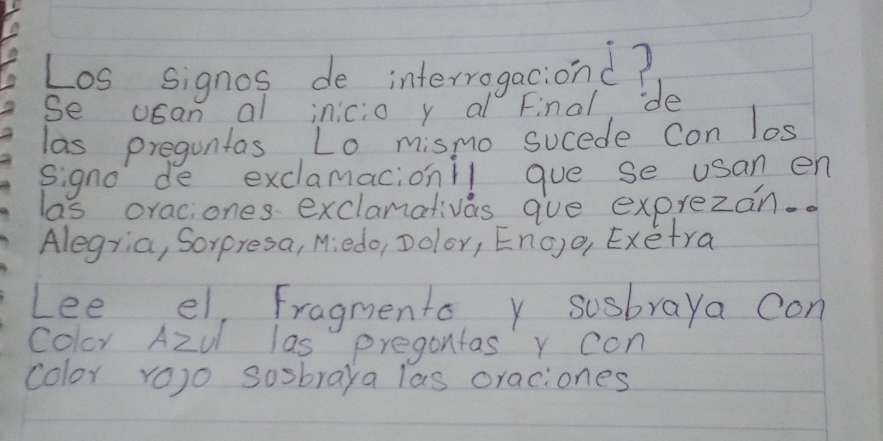 Los signos de interrogación¿?
Se usan al inicio y al Final de
las preguntas Lo mismo sucede con los
signo de exclamación¡! que se usan en
las oraciones exclamativas que exprezán..
Alegria, Sorpresa, Miedo, Dolor, Enojo, Exetra
Lee el. Fragmento y susbraya con
Color Azul las preguntas y con
color rojo susbraya las oraciones